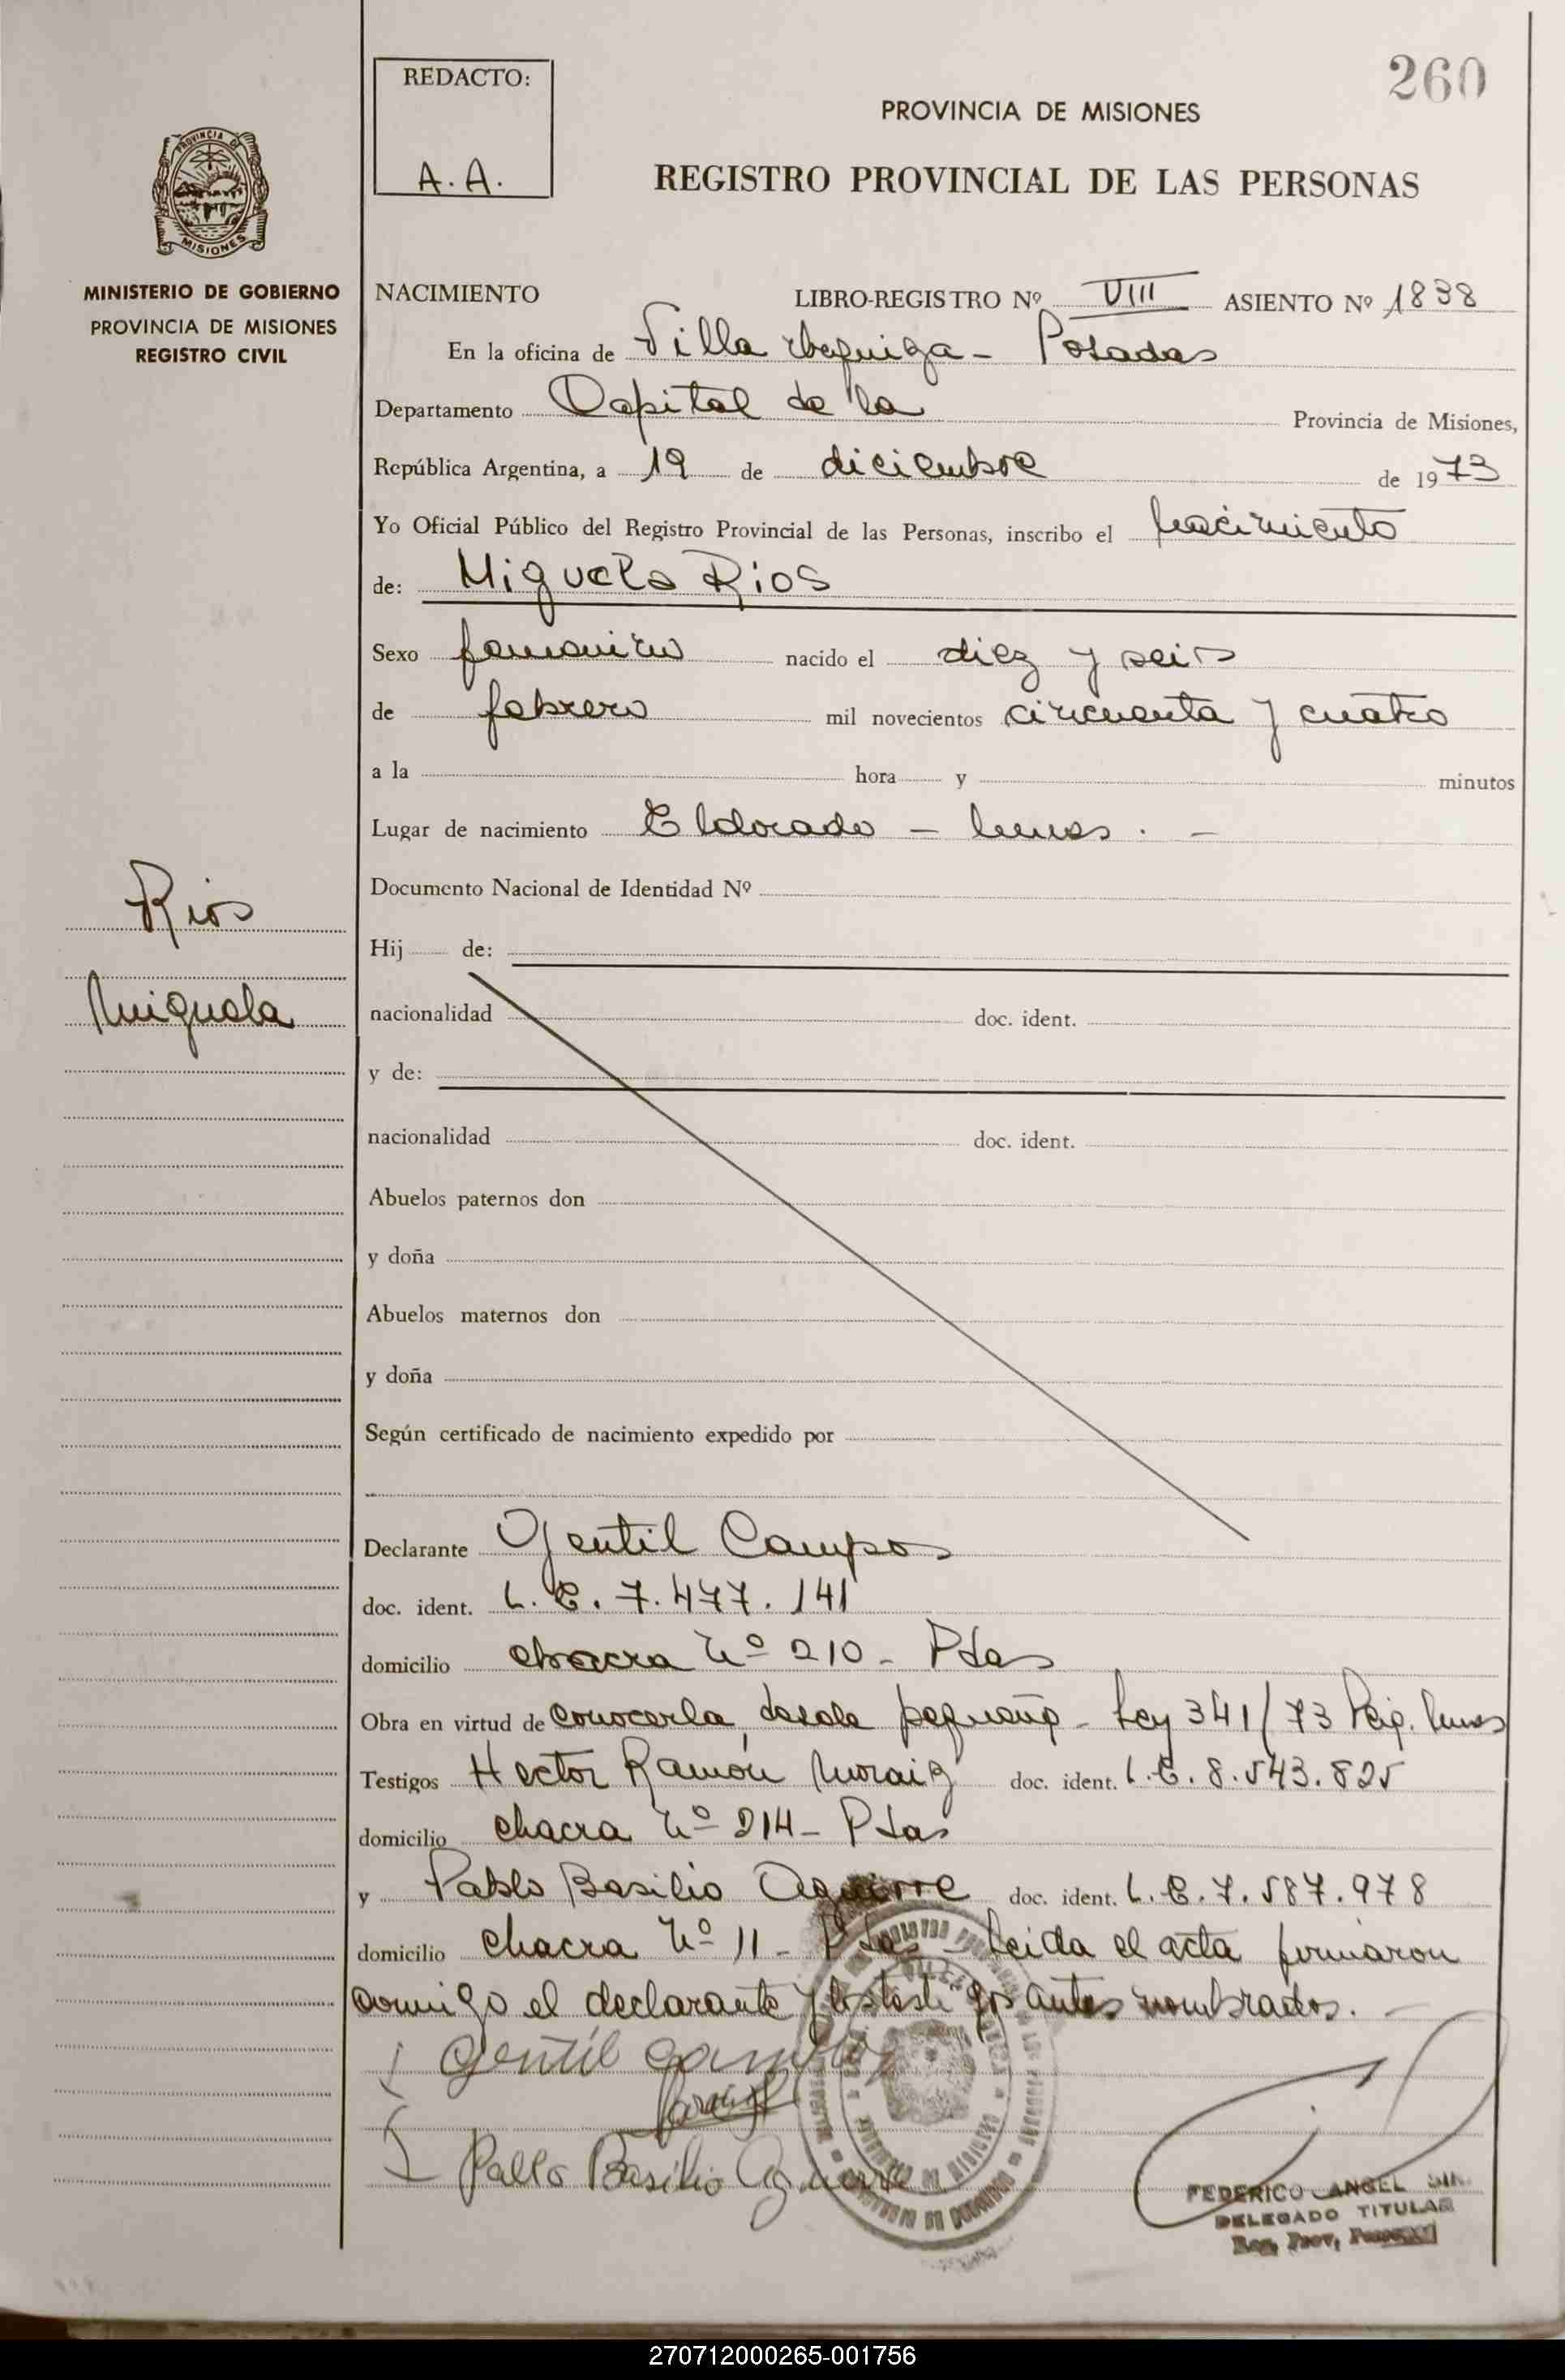 260
REDACTO:
A.A.
PROVINCIA DE MISIONES
REGISTRO PROVINCIAL DE LAS PERSONAS
PROVINCIA DE
MISIONES
MINISTERIO DE GOBIERNO
PROVINCIA DE MISIONES
REGISTRO CIVIL
Rios
Miguela
NACIMIENTO LIBRO-REGISTRO Nº VIII ASIENTO Nº 1838
En la oficina de Villa Urquiza - Posadas
Departamento Capital de la Provincia de Misiones,
República Argentina, a 19 de diciembre de 1973
Yo Oficial Público del Registro Provincial de las Personas, inscribo el nacimiento
de: Miguela Rios
Sexo femenino nacido el diez y seis
de febrero mil novecientos cincuenta y cuatro
a la hora y minutos
Lugar de nacimiento Eldorado - Mnes. -
Documento Nacional de Identidad Nº
Hij de:
nacionalidad doc. ident.
y de:
nacionalidad doc. ident.
Abuelos paternos don
y doña
Abuelos maternos don
y doña
Según certificado de nacimiento expedido por
Declarante Gentil Campos
doc. ident. L.E. 7.477.141
domicilio chacra Nº 210 - Pdas
Obra en virtud de conocerla desde pequeña - Ley 341/73 Mnes
Testigos Hector Ramón doc. ident. L.E. 8.543.825
domicilio chacra Nº 214 - Pdas
y Pablo Basilio Aguirre doc. ident. L.E. 7.587.978
domicilio chacra Nº 11 - Pdas - Leida el acta firmaron
conmigo el declarante y los testigos antes nombrados. -
Gentil Campos
Pablo Basilio Aguirre
FEDERICO ANGEL
DELEGADO TITULAR
Reg. Prov.
270712000265-001756